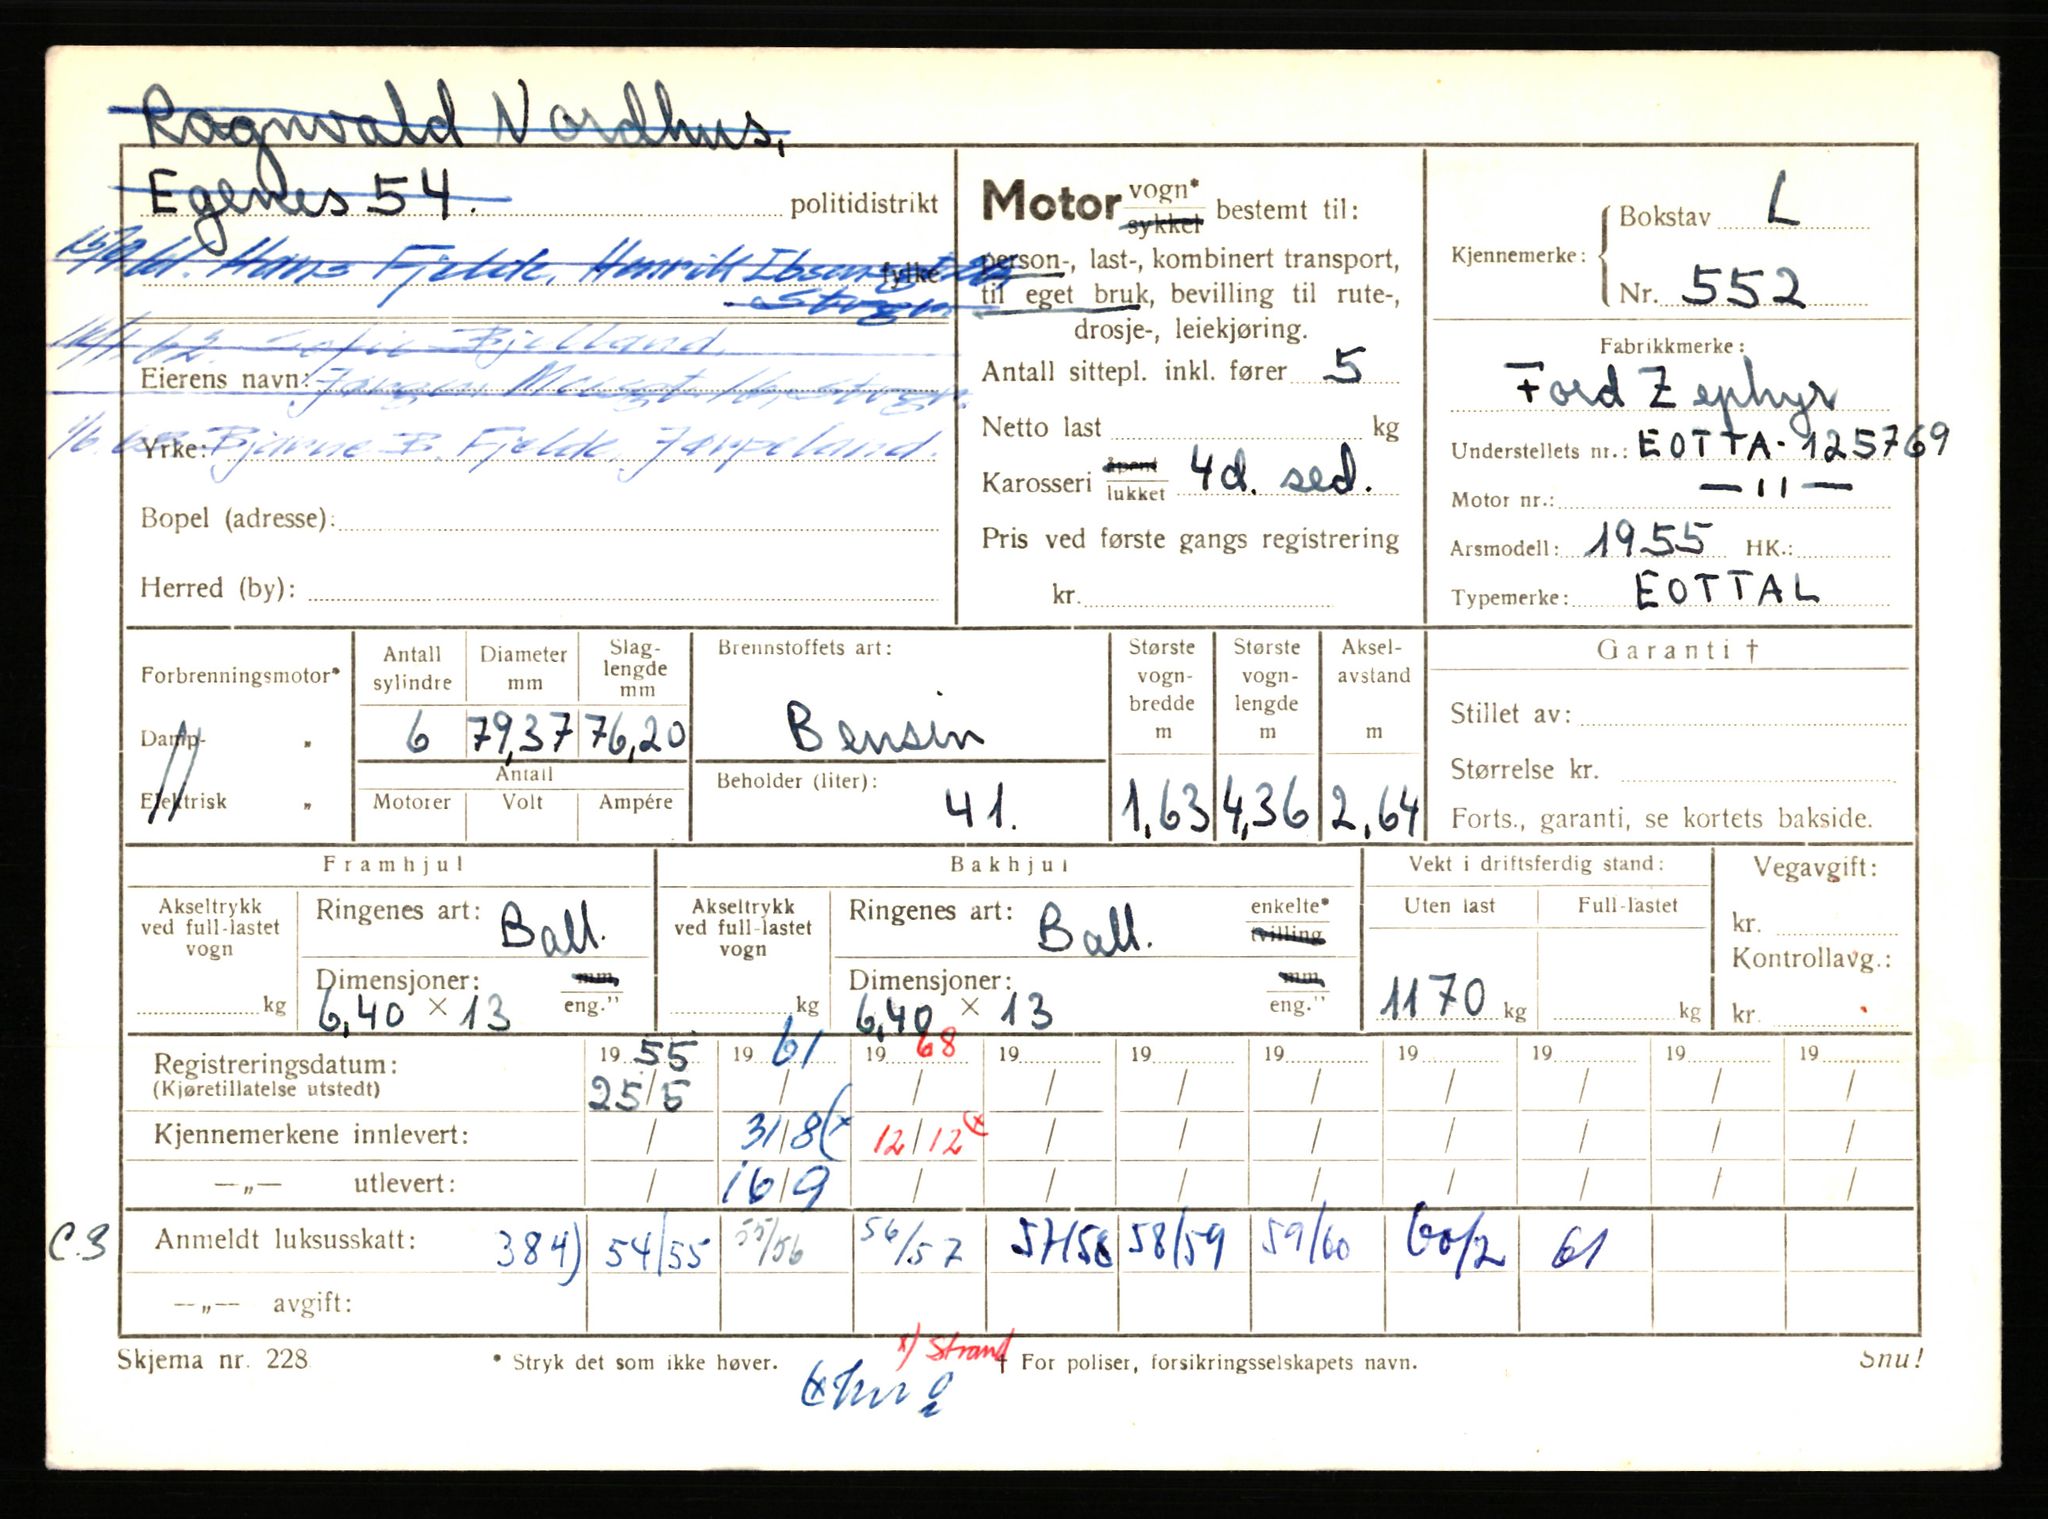 Ragnvald Nordhus,
Egenes 54. politidistrikt
Hans Fjelde, Henrik Ibsens fylke
Bjelland
Eierens navn: Jørgen
Yrke: Bjarne B. Fjelde, Jørpeland.
Bopel (adresse):
Herred (by):
Motor vogn* sykkel bestemt til:
person-, last-, kombinert transport,
til eget bruk, bevilling til rute-,
drosje-, leiekjøring.
Antall sittepl. inkl. fører 5
Netto last kg
Karosseri åpent lukket 4d. sed.
Pris ved første gangs registrering
kr.
Kjennemerke: Bokstav L
Nr. 552
Fabrikkmerke:
Ford Zephyr
Understellets nr.: EOTTA-125769
Motor nr.: — 11 —
Arsmodell: 1955 HK.:
Typemerke: EOTTAL
Forbrenningsmotor*
Damp- "
Elektrisk "
Antall sylindre Diameter mm Slag-lengde mm
6 79,37 76,20
Antall
Motorer Volt Ampére
Brennstoffets art:
Bensin
Beholder (liter):
41.
Største vogn-bredde m Største vogn-lengde m Aksel-avstand m
1,63 4,36 2,64
Garanti †
Stillet av:
Størrelse kr.
Forts., garanti, se kortets bakside.
Framhjul
Akseltrykk ved full-lastet vogn
kg
Ringenes art: Ball.
Dimensjoner: mm eng."
6,40 × 13
Bakhjul
Akseltrykk ved full-lastet vogn
kg
Ringenes art: Ball. enkelte* tvilling
Dimensjoner: mm eng."
6,40 × 13
Vekt i driftsferdig stand:
Uten last Full-lastet
1170 kg kg
Vegavgift:
kr.
Kontrollavg.:
kr.
Registreringsdatum: 19 55 19 61 19 68 19 19 19 19 19 19 19
(Kjøretillatelse utstedt) 25/5 / / / / / / / / /
Kjennemerkene innlevert: / 31/8(x 12/12(x / / / / / / /
—„— utlevert: / 16/9 / / / / / / / /
C.3 Anmeldt luksusskatt: 384) 54/55 55/56 56/57 57/58 58/59 59/60 60/2 61
—„— avgift:
x) Strand
Skjema nr. 228 * Stryk det som ikke høver. † For poliser, forsikringsselskapets navn. Snu!